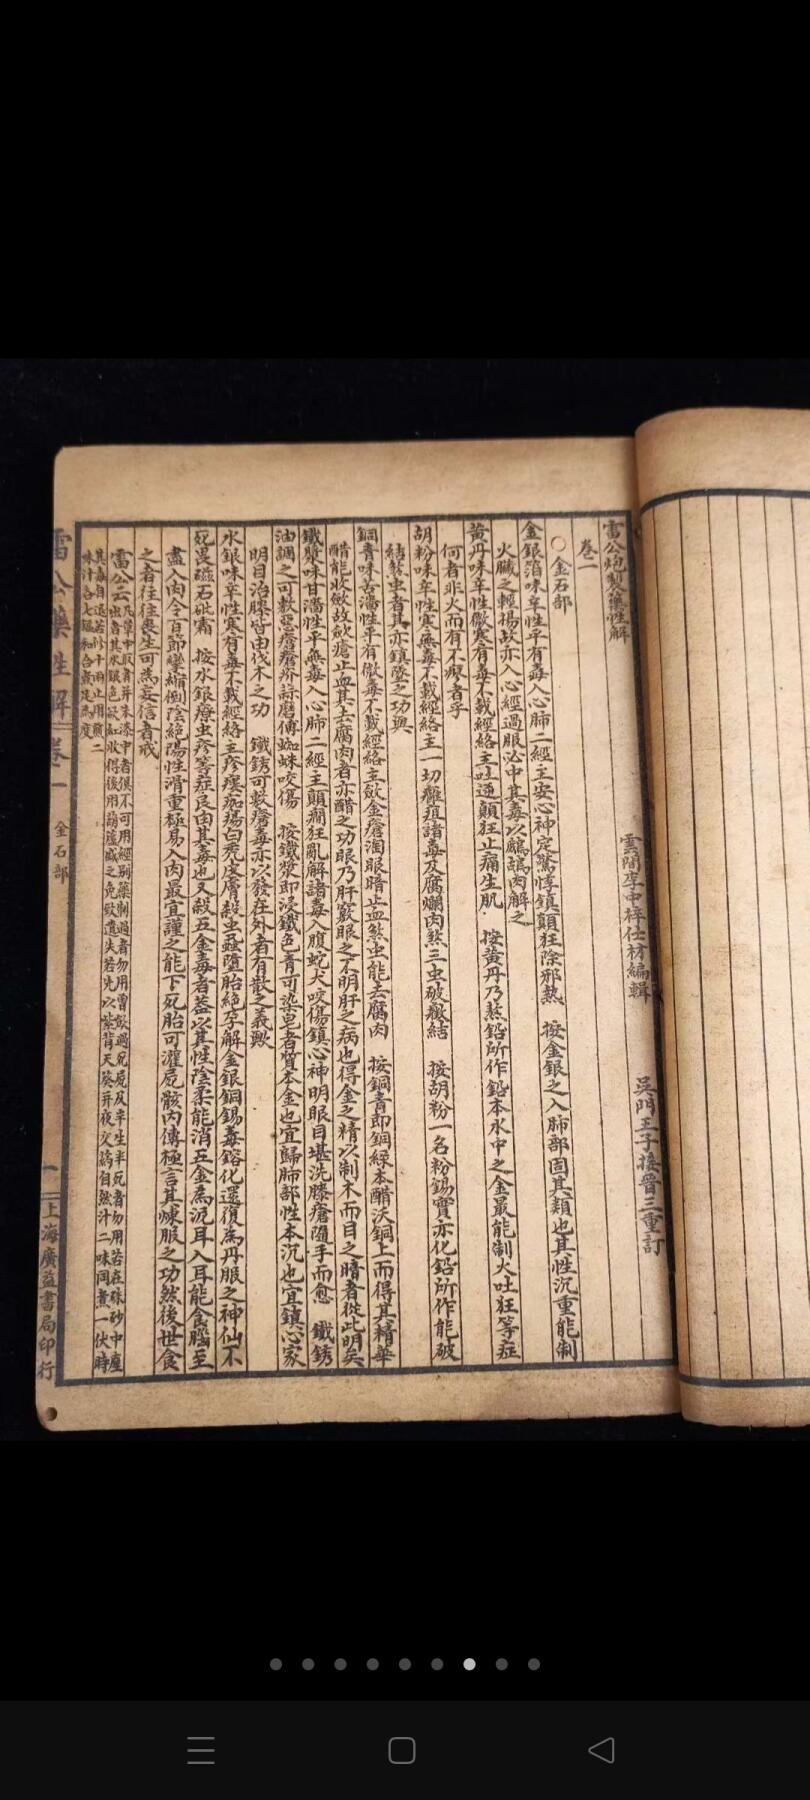 雷公炮製藥性解
卷一
雲間李中梓仕材編輯
吳門王子接晉三重訂
○金石部
金銀箔味辛性平有毒入心肺二經主安心神定驚悸鎮顛狂除邪熱 按金銀之入肺部固其類也其性沉重能制
火臟之輕揚故亦入心經過服必中其毒以鷓鴣肉解之
黃丹味辛性微寒有毒不載經絡主吐逆顛狂止痛生肌 按黃丹乃熬鉛所作鉛本水中之金最能制火吐狂等症
何者非火而有不瘳者乎
胡粉味辛性寒無毒不載經絡主一切癰疽諸毒及腐爛肉煞三虫破癥結 按胡粉一名粉錫實亦化鉛所作能破
結煞虫者其亦鎮墜之功與
銅青味苦濇性平有微毒不載經絡主斂金瘡洇眼暗止血煞虫能去腐肉 按銅青即銅綠本醋沃銅上而得其精華
醋能收斂故斂瘡止血其去腐肉者亦醋之功眼乃肝竅眼之不明肝之病也得金之精以制木而目之暗者從此明矣
鐵漿味甘濇性平無毒入心肺二經主顛癎狂亂解諸毒入腹蛇犬咬傷鎮心神明眼目堪洗膝瘡隨手而愈 鐵銹
油調之可敷惡瘡瘡疥蒜磨傅蜘蛛咬傷 按鐵漿即浸鐵色青可染皂者質本金也宜歸肺部性本沉也宜鎮心家
明目治膝皆由伐木之功 鐵銹可敷瘡毒亦以發在外者有散之義歟
水銀味辛性寒有毒不載經絡主疹瘻痂瘍白禿皮膚殺虫蟲墮胎絕孕解金銀銅錫毒鎔化還復為丹服之神仙不
死畏磁石砒霜 按水銀療虫疹等症良由其毒也又殺五金毒者蓋以其性陰柔能消五金為泥耳入耳能食腦至
盡入肉令百節攣縮倒陰絕陽性滑重極易入肉最宜謹之能下死胎可灌屍骸內傳極言其煉服之功然後世食
之者往往喪生可為妄信者戒
雷公云凡草中取者并朱漆中者俱不可用經別藥制過者勿用曾飲過死屍及半生半死者勿用若在硃砂中產
出者其水銀色微紅收得後用葫蘆盛之免致遺失若先以紫背天葵并夜交藤自然汁二味同煮一伏時
其毒自退若修十兩止用前二
味汁各七鎰和合煮足為度
雷公藥性解 卷一 金石部 一 上海廣益書局印行